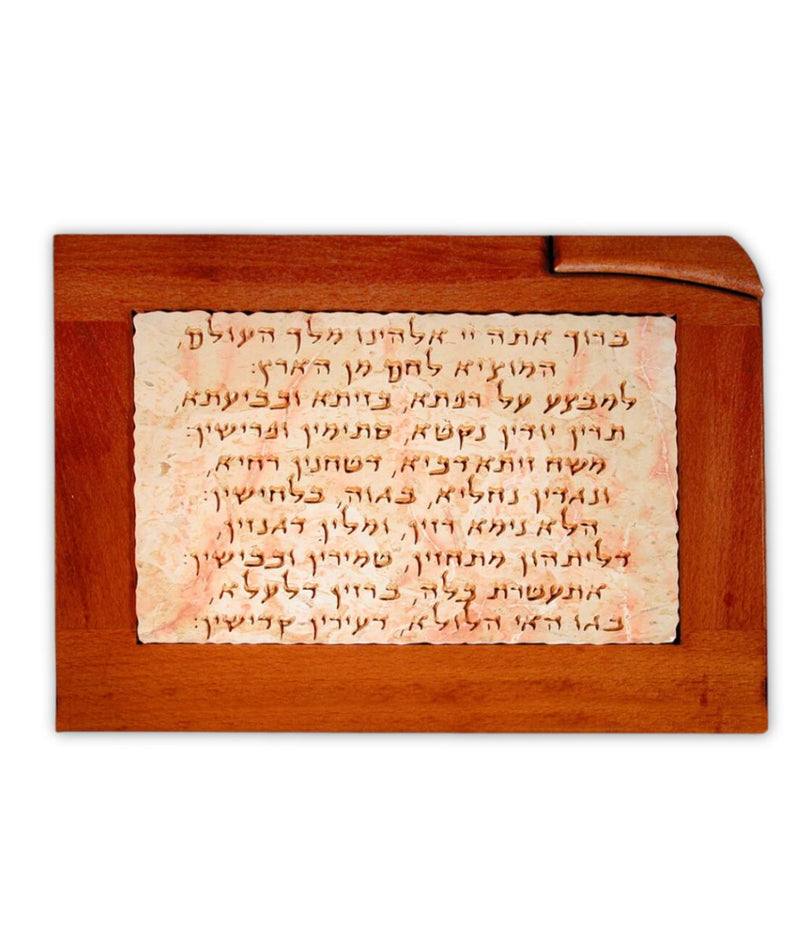 ברוך אתה יי אלהינו מלך העולם,
המוציא לחם מן הארץ:
למבצע על רפתא, בזיתא וכביעתא,
תרין יודין נקטא, סתימין ופרישין:
משח זיתא דכיא, דטחנין רחיא,
ונגדין נחליא, בגוה, בלחישין:
הלא נימא רזין, ומלין דגנזין,
דליתהון מתחזין, טמירין וכבישין:
אתעטרת כלה, ברזין דלעלא,
בגו האי הלולא, דעירין קדישין: